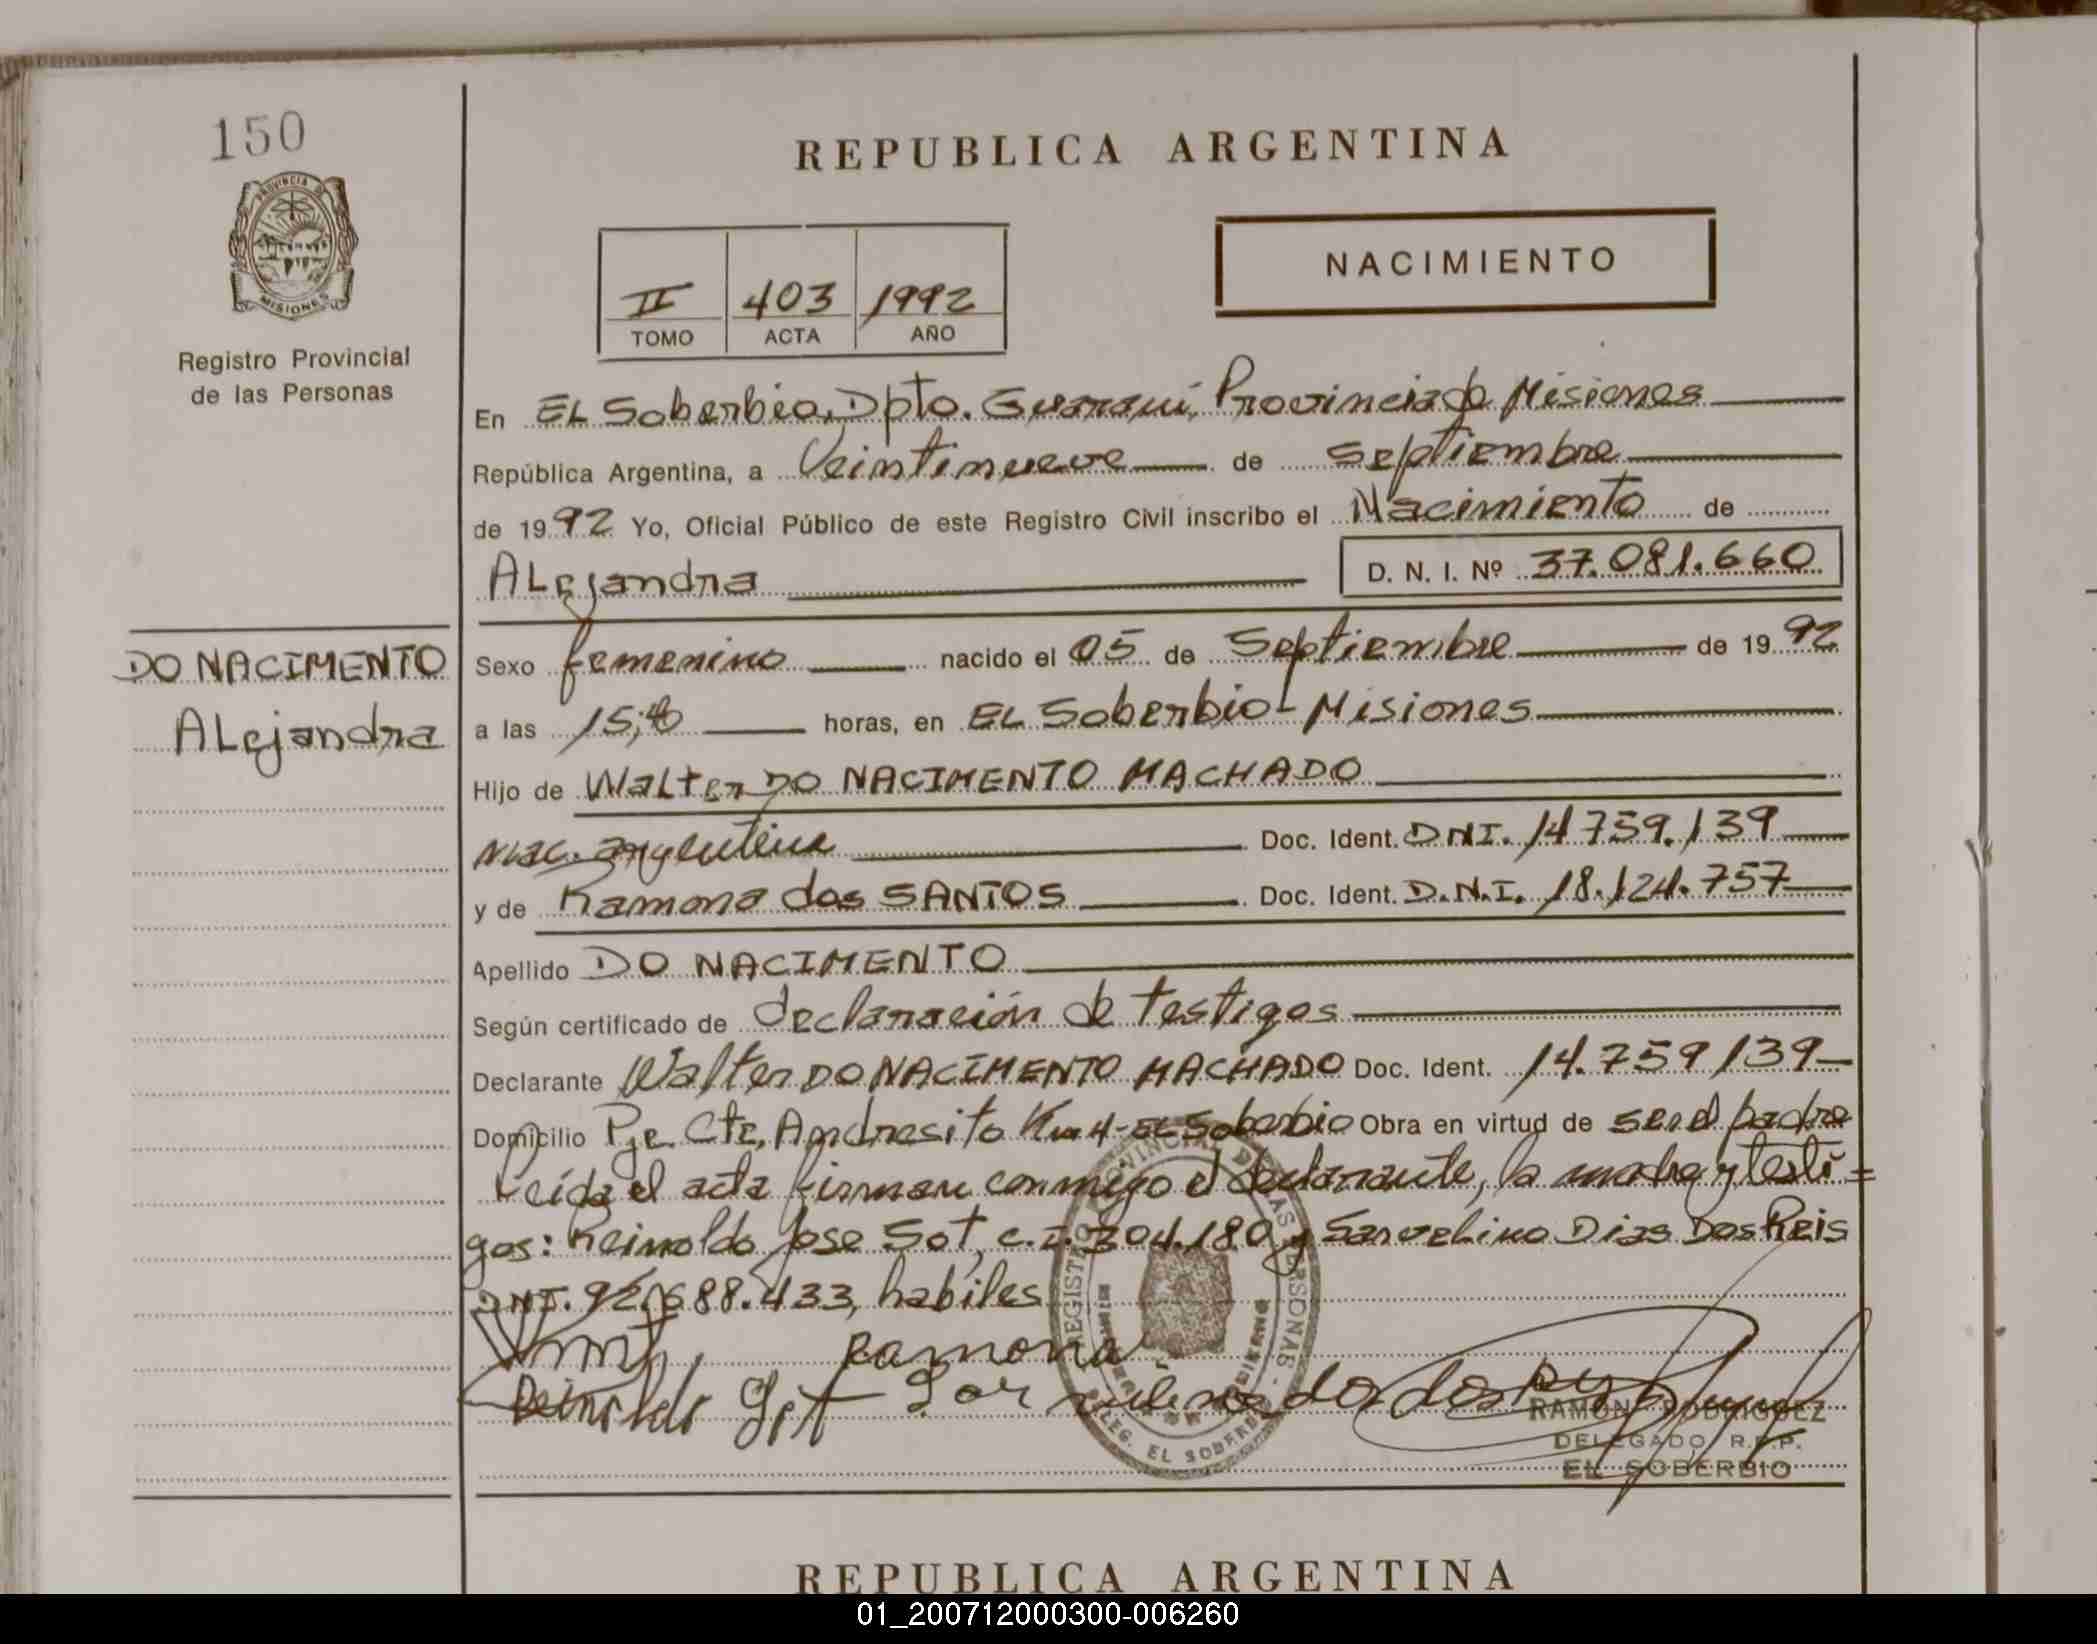 150
PROVINCIA DE
MISIONES
Registro Provincial
de las Personas
REPUBLICA ARGENTINA
NACIMIENTO
II 403 1992
TOMO ACTA AÑO
En EL Soberbio, Dpto. Guaraní, Provincia de Misiones
República Argentina, a Veintinueve de Septiembre
de 1992 Yo, Oficial Público de este Registro Civil inscribo el Nacimiento de
ALejandra D. N. I. Nº 37.081.660
DO NACIMENTO
ALejandra
Sexo femenino nacido el 05 de Septiembre de 1992
a las 15;40 horas, en EL Soberbio - Misiones
Hijo de Walter DO NACIMENTO MACHADO
nac. argentina Doc. Ident. DNI. 14.759.139
y de Ramona dos SANTOS Doc. Ident. D.N.I. 18.124.757
Apellido DO NACIMENTO
Según certificado de declaración de testigos
Declarante Walter DO NACIMENTO MACHADO Doc. Ident. 14.759139
Domicilio Pje. Cte. Andresito Km 4-EL Soberbio Obra en virtud de ser el padre
Leída el acta firman conmigo el declarante, la madre y testi=
gos: Reinoldo Jose Sot, c.I. 304.180 y Sarvelino Dias Dos Reis
DNI. 92.688.433, habiles
Ramona
Reinoldo Sot
REGISTRO PROVINCIAL DE LAS PERSONAS
DELEG. EL SOBERBIO
RAMON RODRIGUEZ
DELEGADO R.P.P.
EL SOBERBIO
REPUBLICA ARGENTINA
01_200712000300-006260